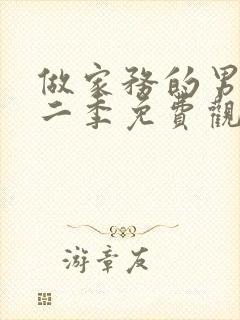 做家務的男
二季免費觀
游章友